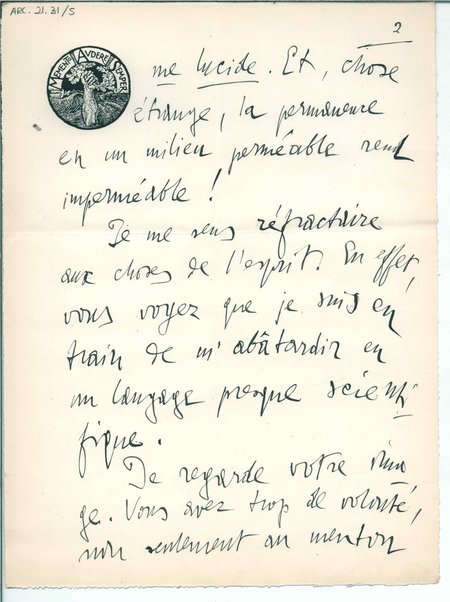 ARC. 21. 31/5
2
MEMENTO AUDERE SEMPER
me lucide. Et, chose
étrange, la permanence
en un milieu perméable rend
imperméable !
Je me sens réfractaire
aux choses de l'esprit. En effet,
vous voyez que je suis en
train de m'abâtardir en
un langage presque scienti
fique.
Je regarde votre ima
ge. Vous avez trop de volonté,
non seulement au menton